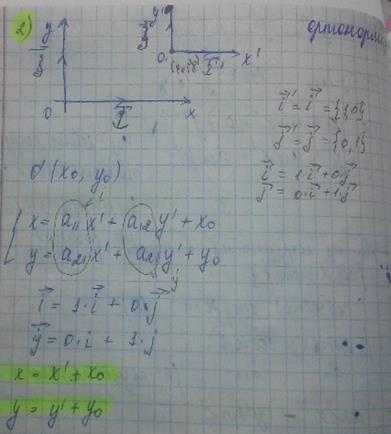 2)
y
y'
j
j'
O'
(x₀, y₀)
i'
x'
O
i
x
i' = i = {1,0}
j' = j = {0,1}
i = 1·i + 0·j
j = 0·i + 1·j
O' (x₀, y₀)
x = a₁₁ x' + a₁₂ y' + x₀
y = a₂₁ x' + a₂₂ y' + y₀
i = 1·i + 0·j
y = 0·i + 1·j
x = x' + x₀
y = y' + y₀